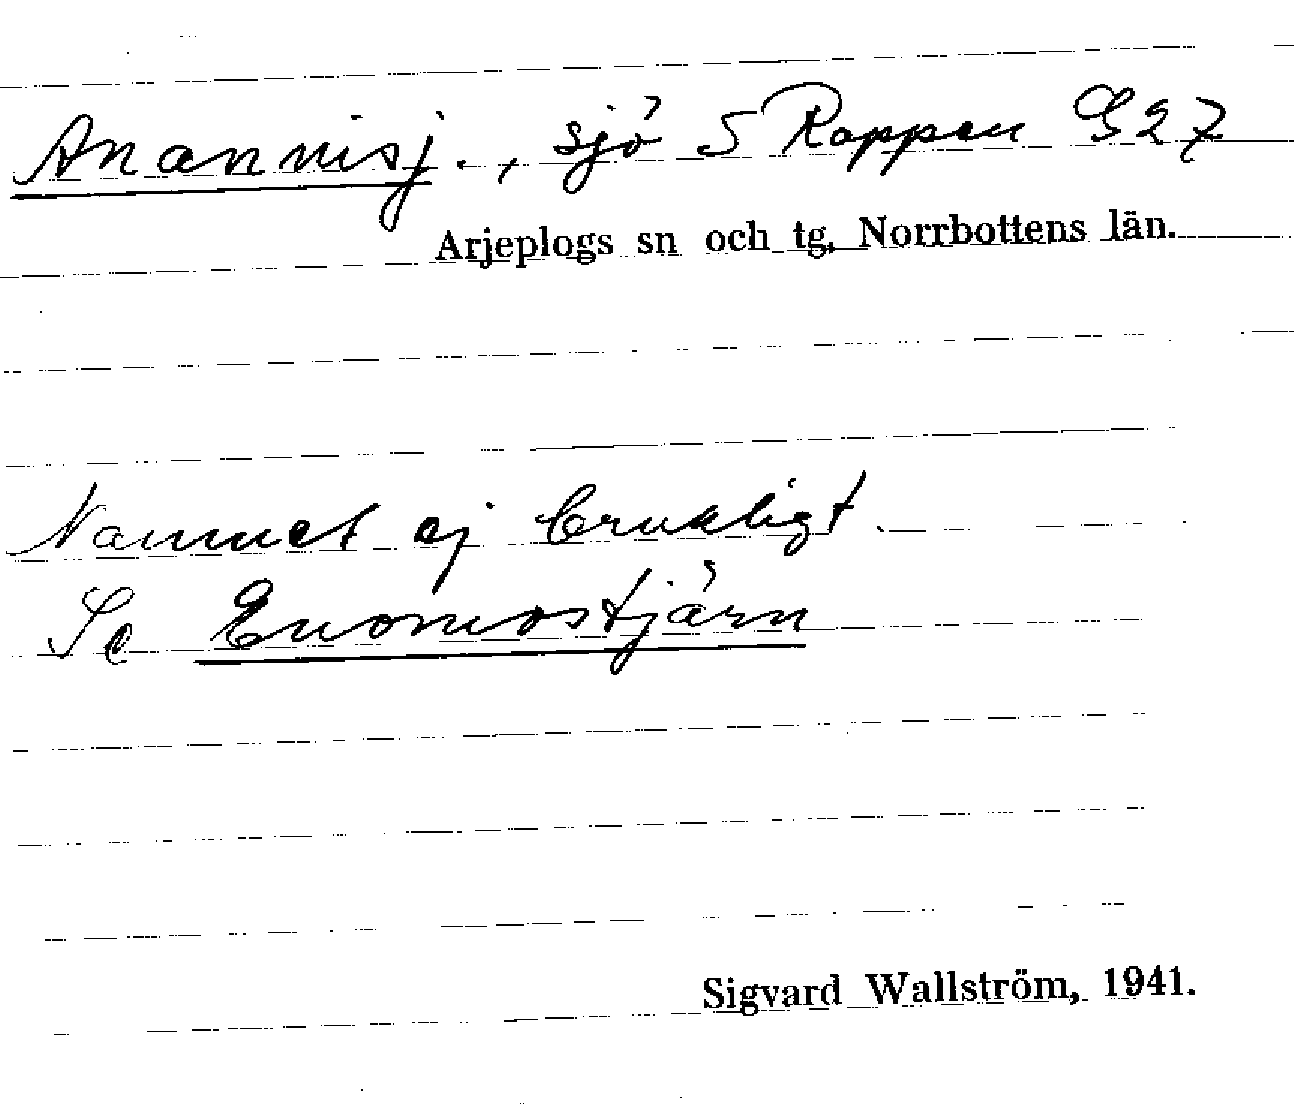 Anannisj., sjö S Rappen G27
Arjeplogs sn och tg, Norrbottens län.
Namnet ej brukligt.
Se Enoniostjärn
Sigvard Wallström, 1941.